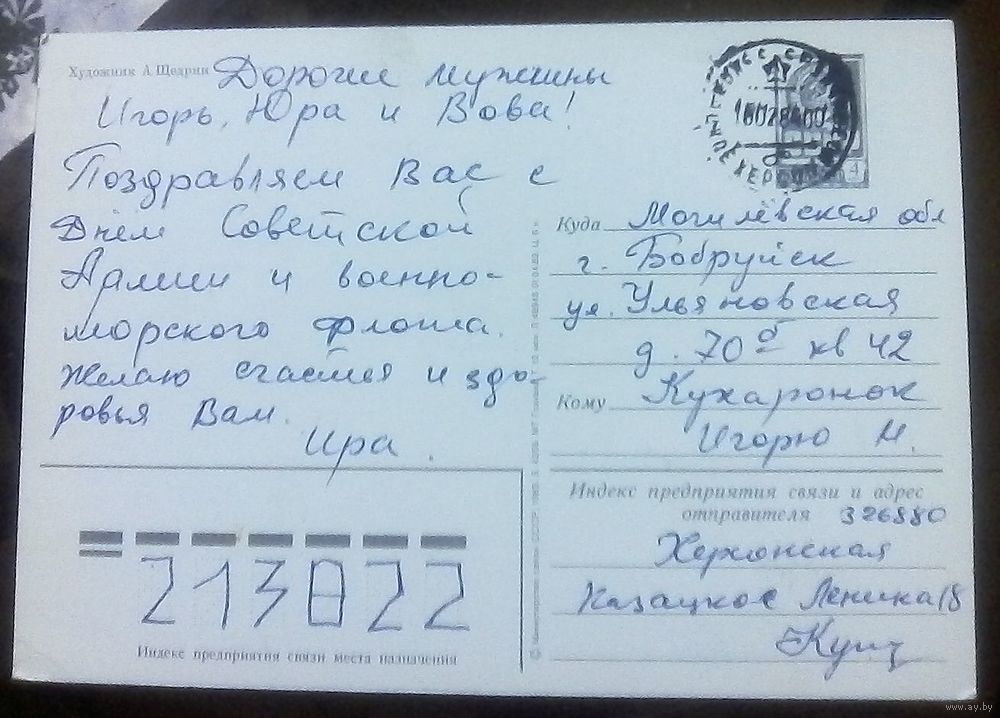 Художник А. Щедрин
Дорогие мужчины
Игорь, Юра и Вова!
Поздравляем Вас с
Днём Советской
Армии и военно-
морского флота.
Желаю счастья и здо-
ровья Вам.
Ира.
Куда Могилёвская обл
г. Бобруйск
ул. Ульяновская
д. 70б кв 42
Кому Кухаронок
Игорю М.
Индекс предприятия связи и адрес
отправителя 326880
Херсонская
Казацкое Ленина 18
213822
Индекс предприятия связи места назначения
www.ay.by